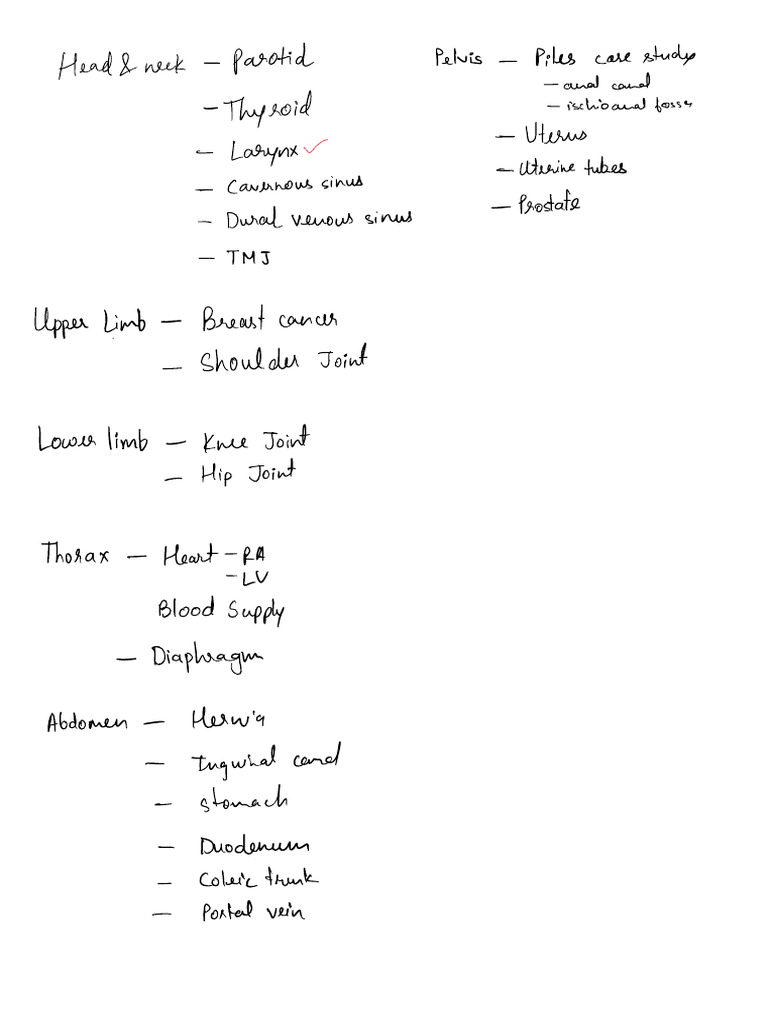 Head & neck - Parotid
- Thyroid
- Larynx ✓
- Cavernous sinus
- Dural venous sinus
- TMJ
Pelvis - Piles case study
- anal canal
- ischioanal fossa
- Uterus
- Uterine tubes
- Prostate
Upper Limb - Breast cancer
- Shoulder Joint
Lower limb - Knee Joint
- Hip Joint
Thorax - Heart - RA
- LV
Blood Supply
- Diaphragm
Abdomen - Hernia
- Inguinal canal
- Stomach
- Duodenum
- Coleic trunk
- Portal vein